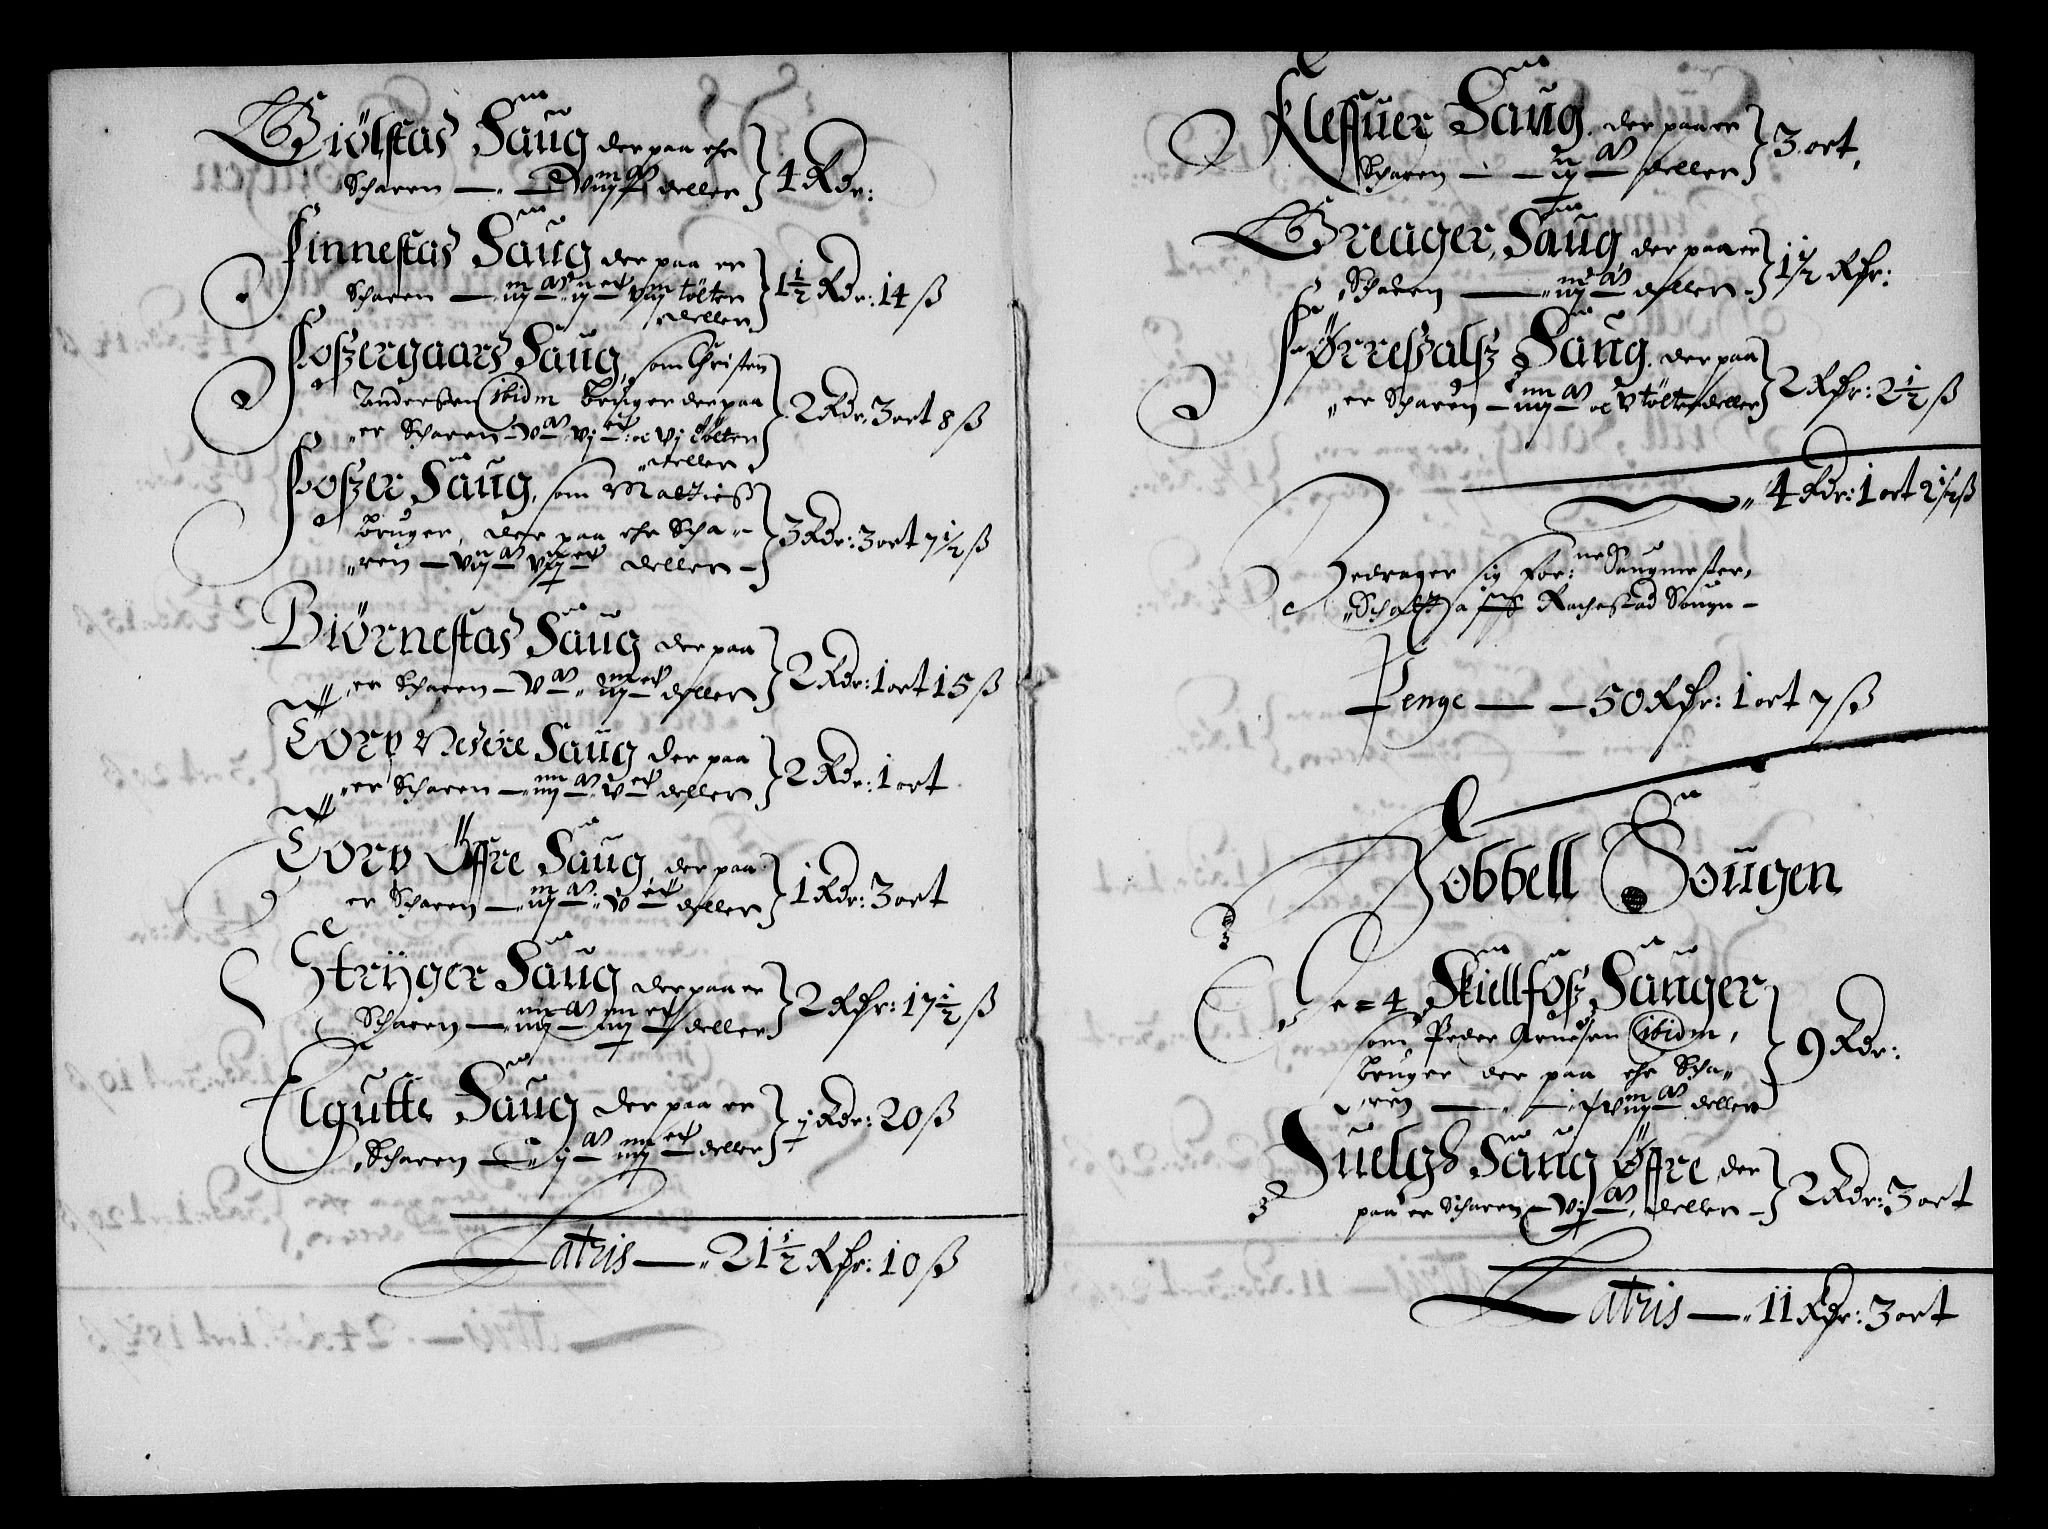 Giölstas Saug der paa ehr
Schaaren — deller 4 Rdr:
Finnestas Saug der paa er
Schaaren — tölter 1½ Rdr: 14 ß
deller
Foszergaars Saug, som Christen
Anderszen ibidm bruger der paa
er Schaaren — oc vj tölter 2 Rdr: 3 ort 8 ß
deller
Foszer Saug, som Mattieß
bruger, der paa ehr Scha-
ren — deller 3 Rdr: 3 ort 7½ ß
Biörnestas Saug der paa
er Schaaren — deller 2 Rdr: 1 ort 15 ß
Torp Nedre Saug der paa
er Schaaren — deller 2 Rdr: 1 ort
Torp Öffre Saug, der paa
er Schaaren — deller 1 Rdr: 3 ort
Strÿger Saug der paa er
Schaaren — deller 2 Rdr: 17½ ß
Elgutte Saug der paa er
Schaaren — deller 1 Rdr: 20 ß
Latris — 21½ Rdr: 10 ß
Kleffuer Saug, der paa er
Schaaren — deller 3 ort,
Greager, Saug, der paa er
Schaaren — deller 1½ Rdr:
Förreszalsz Saug, der paa
er Schaaren — oc v tölter deller 2 Rdr: 2½ ß
4 Rdr: 1 ort 2½ ß
Bedrager sig for:ne Saugmester
Schatt aff Rachestad Sougn
Penge — 50 Rdr: 1 ort 7 ß
Tobbell Sougen
Ehre 4 Skiellfosz Sauger
som Peder Arnesen ibidm,
bruger der paa ehr Scha-
ren — deller 9 Rdr:
Suelgs Saug Öffre der
paa er Schaaren — vj deller 2 Rdr: 3 ort
Latris — 11 Rdr: 3 ort